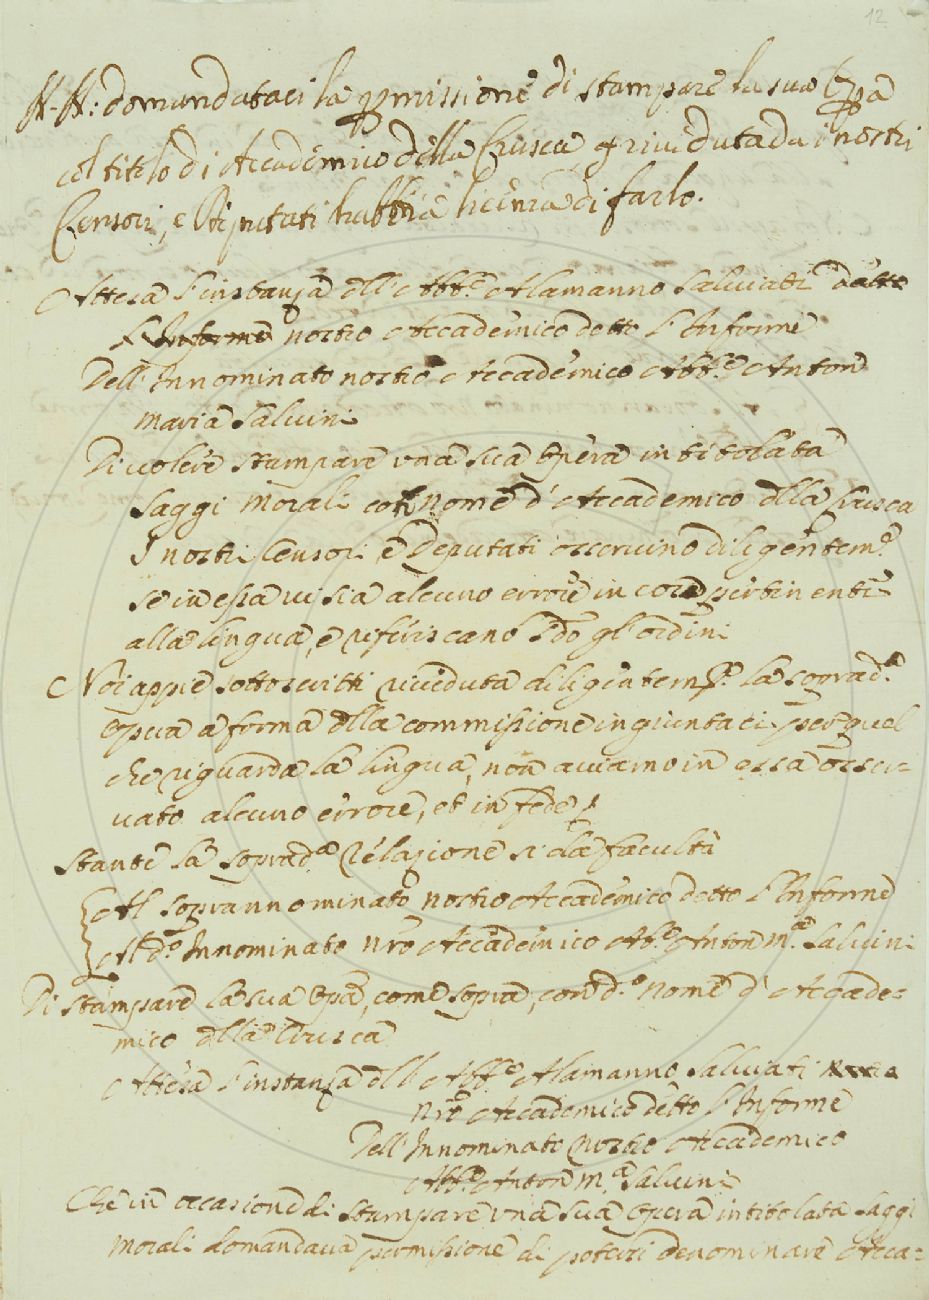 12
N. N: domandataci la p̱missione di stampare la sua Op̱a
col titolo di Accademico della Crusca, e riveduta da i nostri
Censori, e Deputati habbia licenza di farlo.
Attesa l'instanza dell'Abb.e Alamanno Salviati detto
l'Informe nostro Accademico detto l'Informe
Dell'Innominato nostro Accademico Abb.e Anton
Maria Salvini
Di volere stampare una sua Opera intitolata
Saggi Morali col nome d'Accademico della Crusca
I nostri Censori e Deputati osservino diligentem.e
se in essa vi sia alcuno errore in cose pertinenti
alla lingua, e riferiscano s.do gl'ordini
Noi appiè sottoscritti riveduta diligentem.e la soprad.a
opera a forma della commissione ingiuntaci per quel
che riguarda la lingua, non aviamo in essa osser-
vato alcuno errore, et in fede
Stante la soprad.a relazione si dà facultà
Al soprannominato nostro Accademico detto l'Informe
Al d.o Innominato nro Accademico Ab.e Anton M.a Salvini
Di stampare la sua Opa, come sopra, con d.o nome d'Accade-
mico della Crusca
Attesa l'instanza dell'Abb.e Alamanno Salviati
nro Accademico detto l'Informe
Dell'Innominato nostro Accademico
Abb.e Anton M.a Salvini
Che in occasione di stampare una sua Opera intitolata Saggi
Morali domandava permissione di potersi denominare Acca-